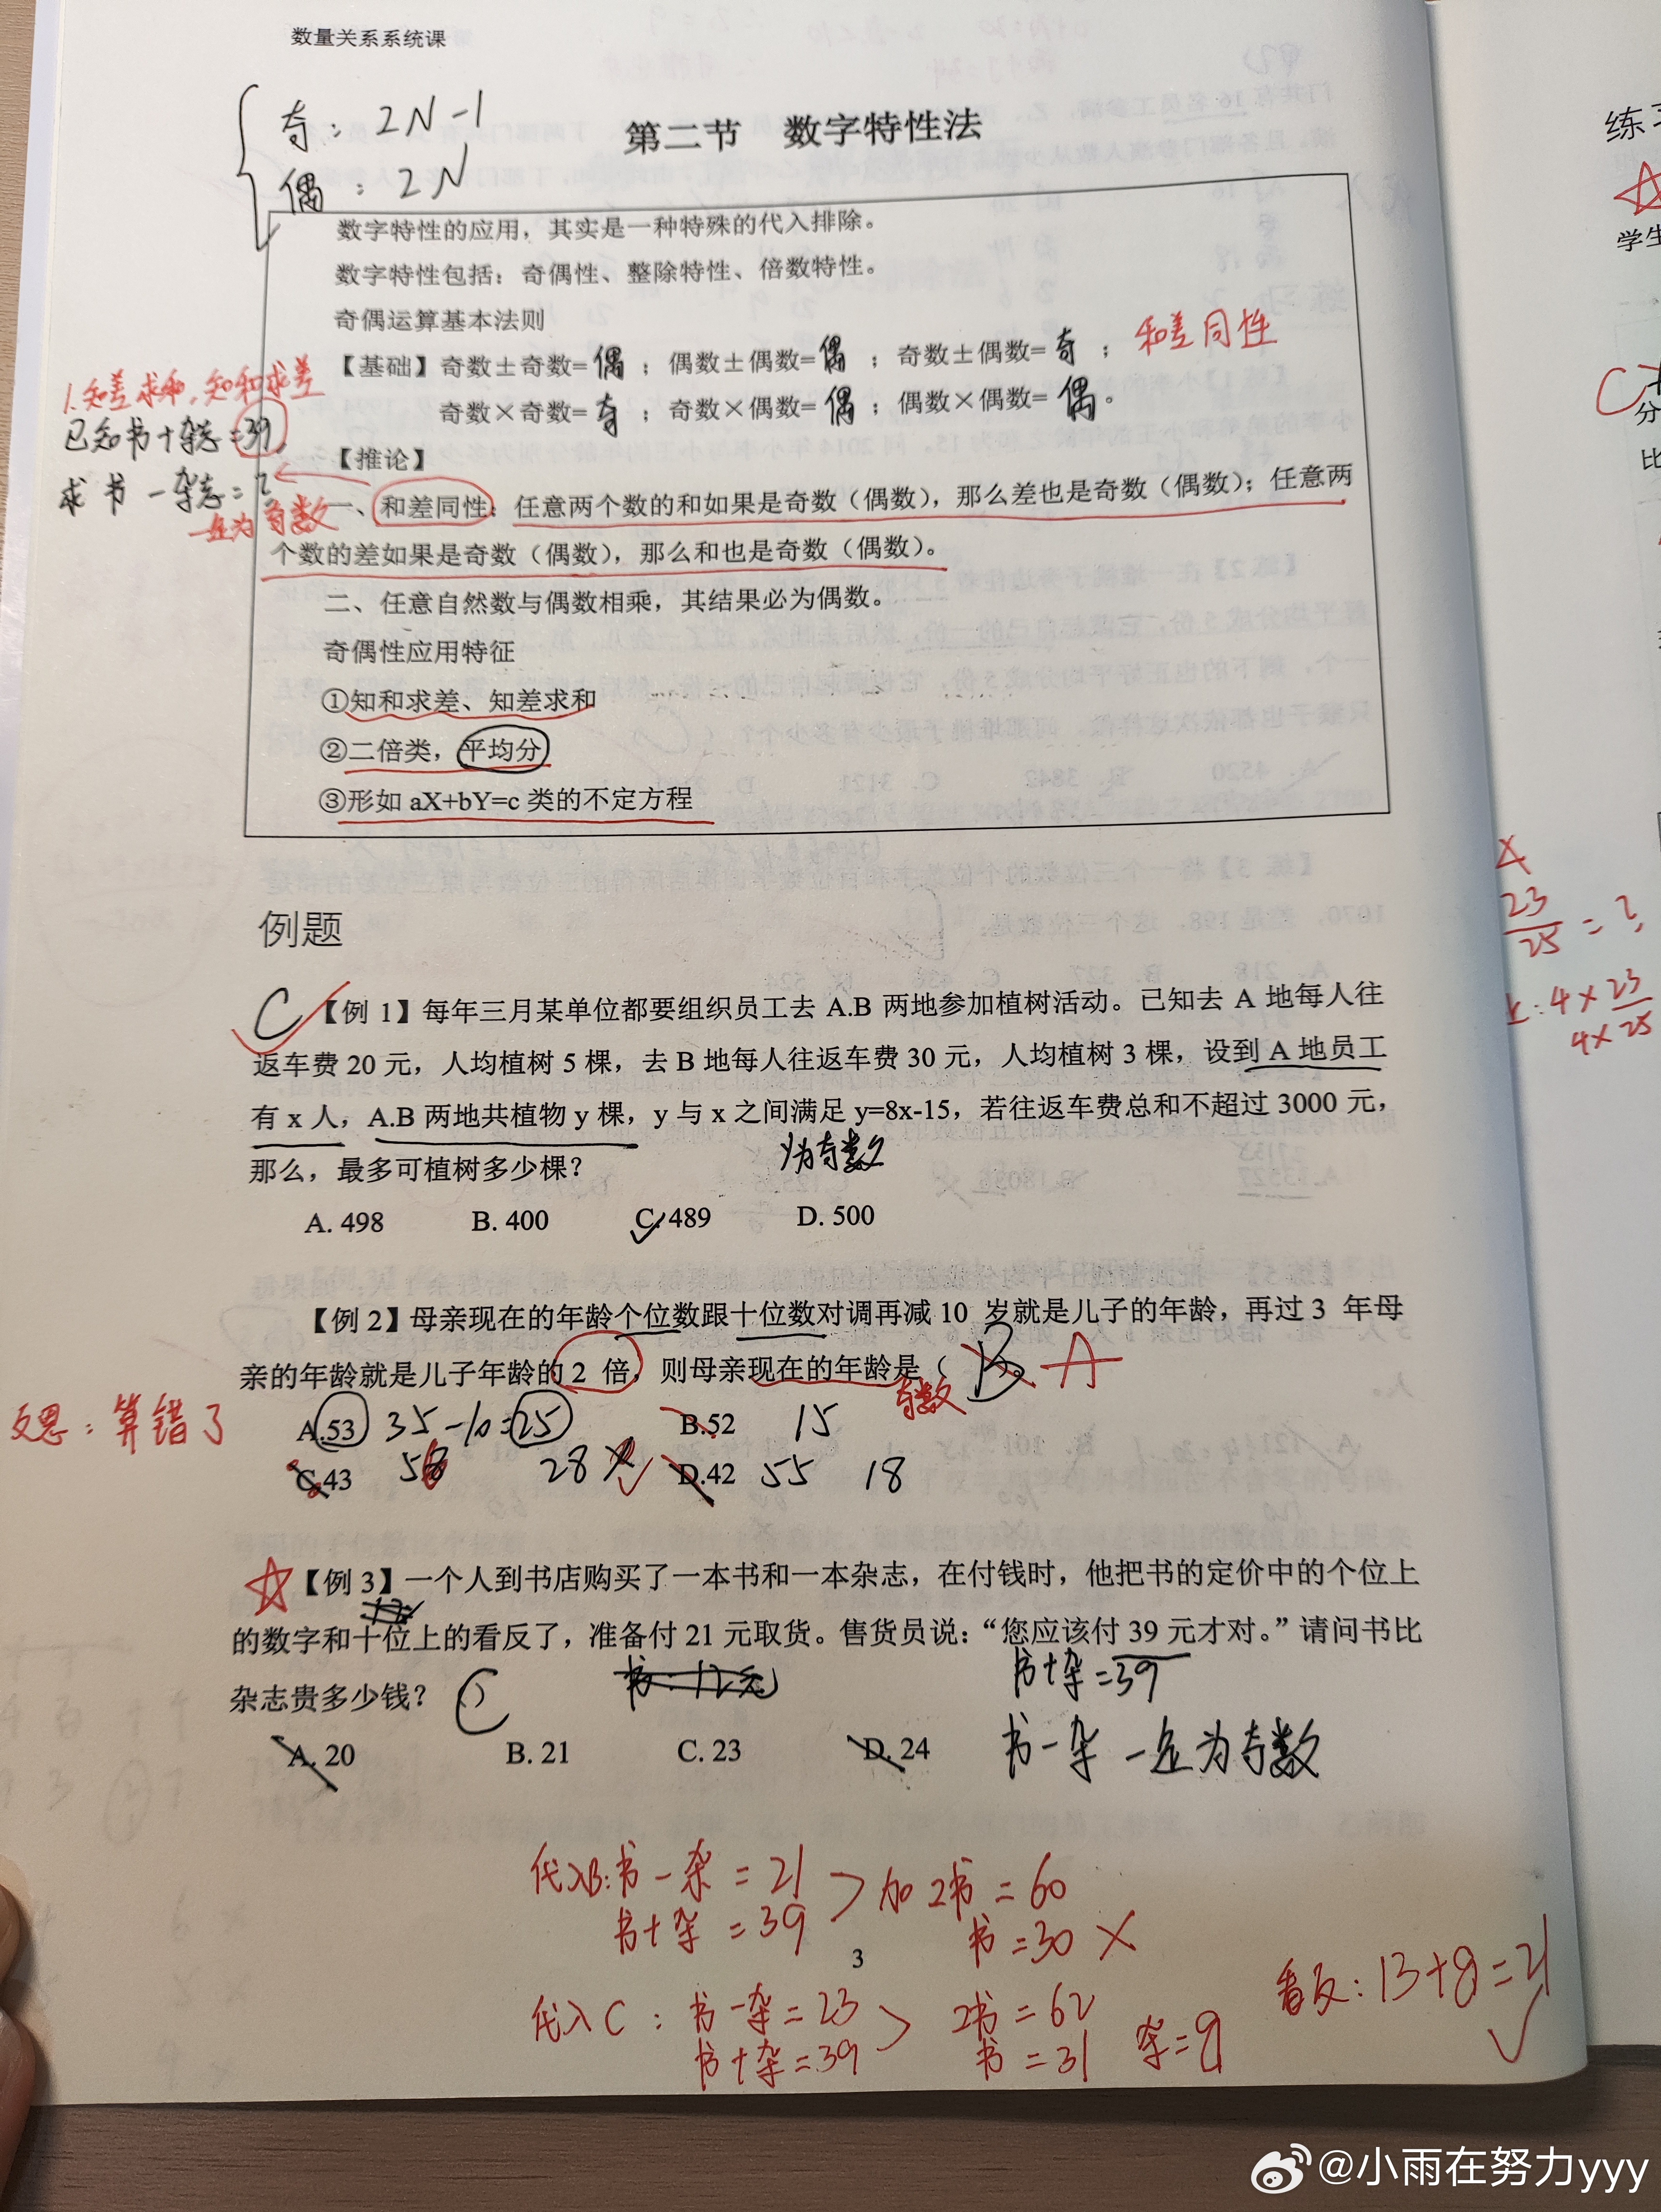 数量关系系统课
奇：2N-1
偶：2N
第二节 数字特性法
数字特性的应用，其实是一种特殊的代入排除。
数字特性包括：奇偶性、整除特性、倍数特性。
奇偶运算基本法则
【基础】奇数±奇数=偶；偶数±偶数=偶；奇数±偶数=奇；和差同性
奇数×奇数=奇；奇数×偶数=偶；偶数×偶数=偶。
1.知差求和,知和求差
已知书+杂志=39,
求书-杂志=?
一定为奇数
【推论】
一、和差同性：任意两个数的和如果是奇数（偶数），那么差也是奇数（偶数）；任意两
个数的差如果是奇数（偶数），那么和也是奇数（偶数）。
二、任意自然数与偶数相乘，其结果必为偶数。
奇偶性应用特征
①知和求差、知差求和
②二倍类，平均分
③形如 aX+bY=c 类的不定方程
例题
C
【例 1】每年三月某单位都要组织员工去 A.B 两地参加植树活动。已知去 A 地每人往
返车费 20 元，人均植树 5 棵，去 B 地每人往返车费 30 元，人均植树 3 棵，设到 A 地员工
有 x 人，A.B 两地共植物 y 棵，y 与 x 之间满足 y=8x-15，若往返车费总和不超过 3000 元，
y为奇数
那么，最多可植树多少棵？
A. 498 B. 400 C. 489 D. 500
【例 2】母亲现在的年龄个位数跟十位数对调再减 10 岁就是儿子的年龄，再过 3 年母
亲的年龄就是儿子年龄的 2 倍，则母亲现在的年龄是（ B A
奇数
反思：算错了
A.53 35-10=25 B.52 15
C.43 28 D.42 55 18
【例 3】一个人到书店购买了一本书和一本杂志，在付钱时，他把书的定价中的个位上
的数字和十位上的看反了，准备付 21 元取货。售货员说：“您应该付 39 元才对。”请问书比
杂志贵多少钱？ C
书+杂=39
A. 20 B. 21 C. 23 D. 24
书-杂 一定为奇数
代入B:书-杂=21
书+杂=39
加 2书=60
书=30 ×
3
代入C：书-杂=23
书+杂=39
2书=62
书=31 杂=8
看反：13+8=21
练习
学生
分
比
23
25
=?
4×23
4×25
@小雨在努力yyy